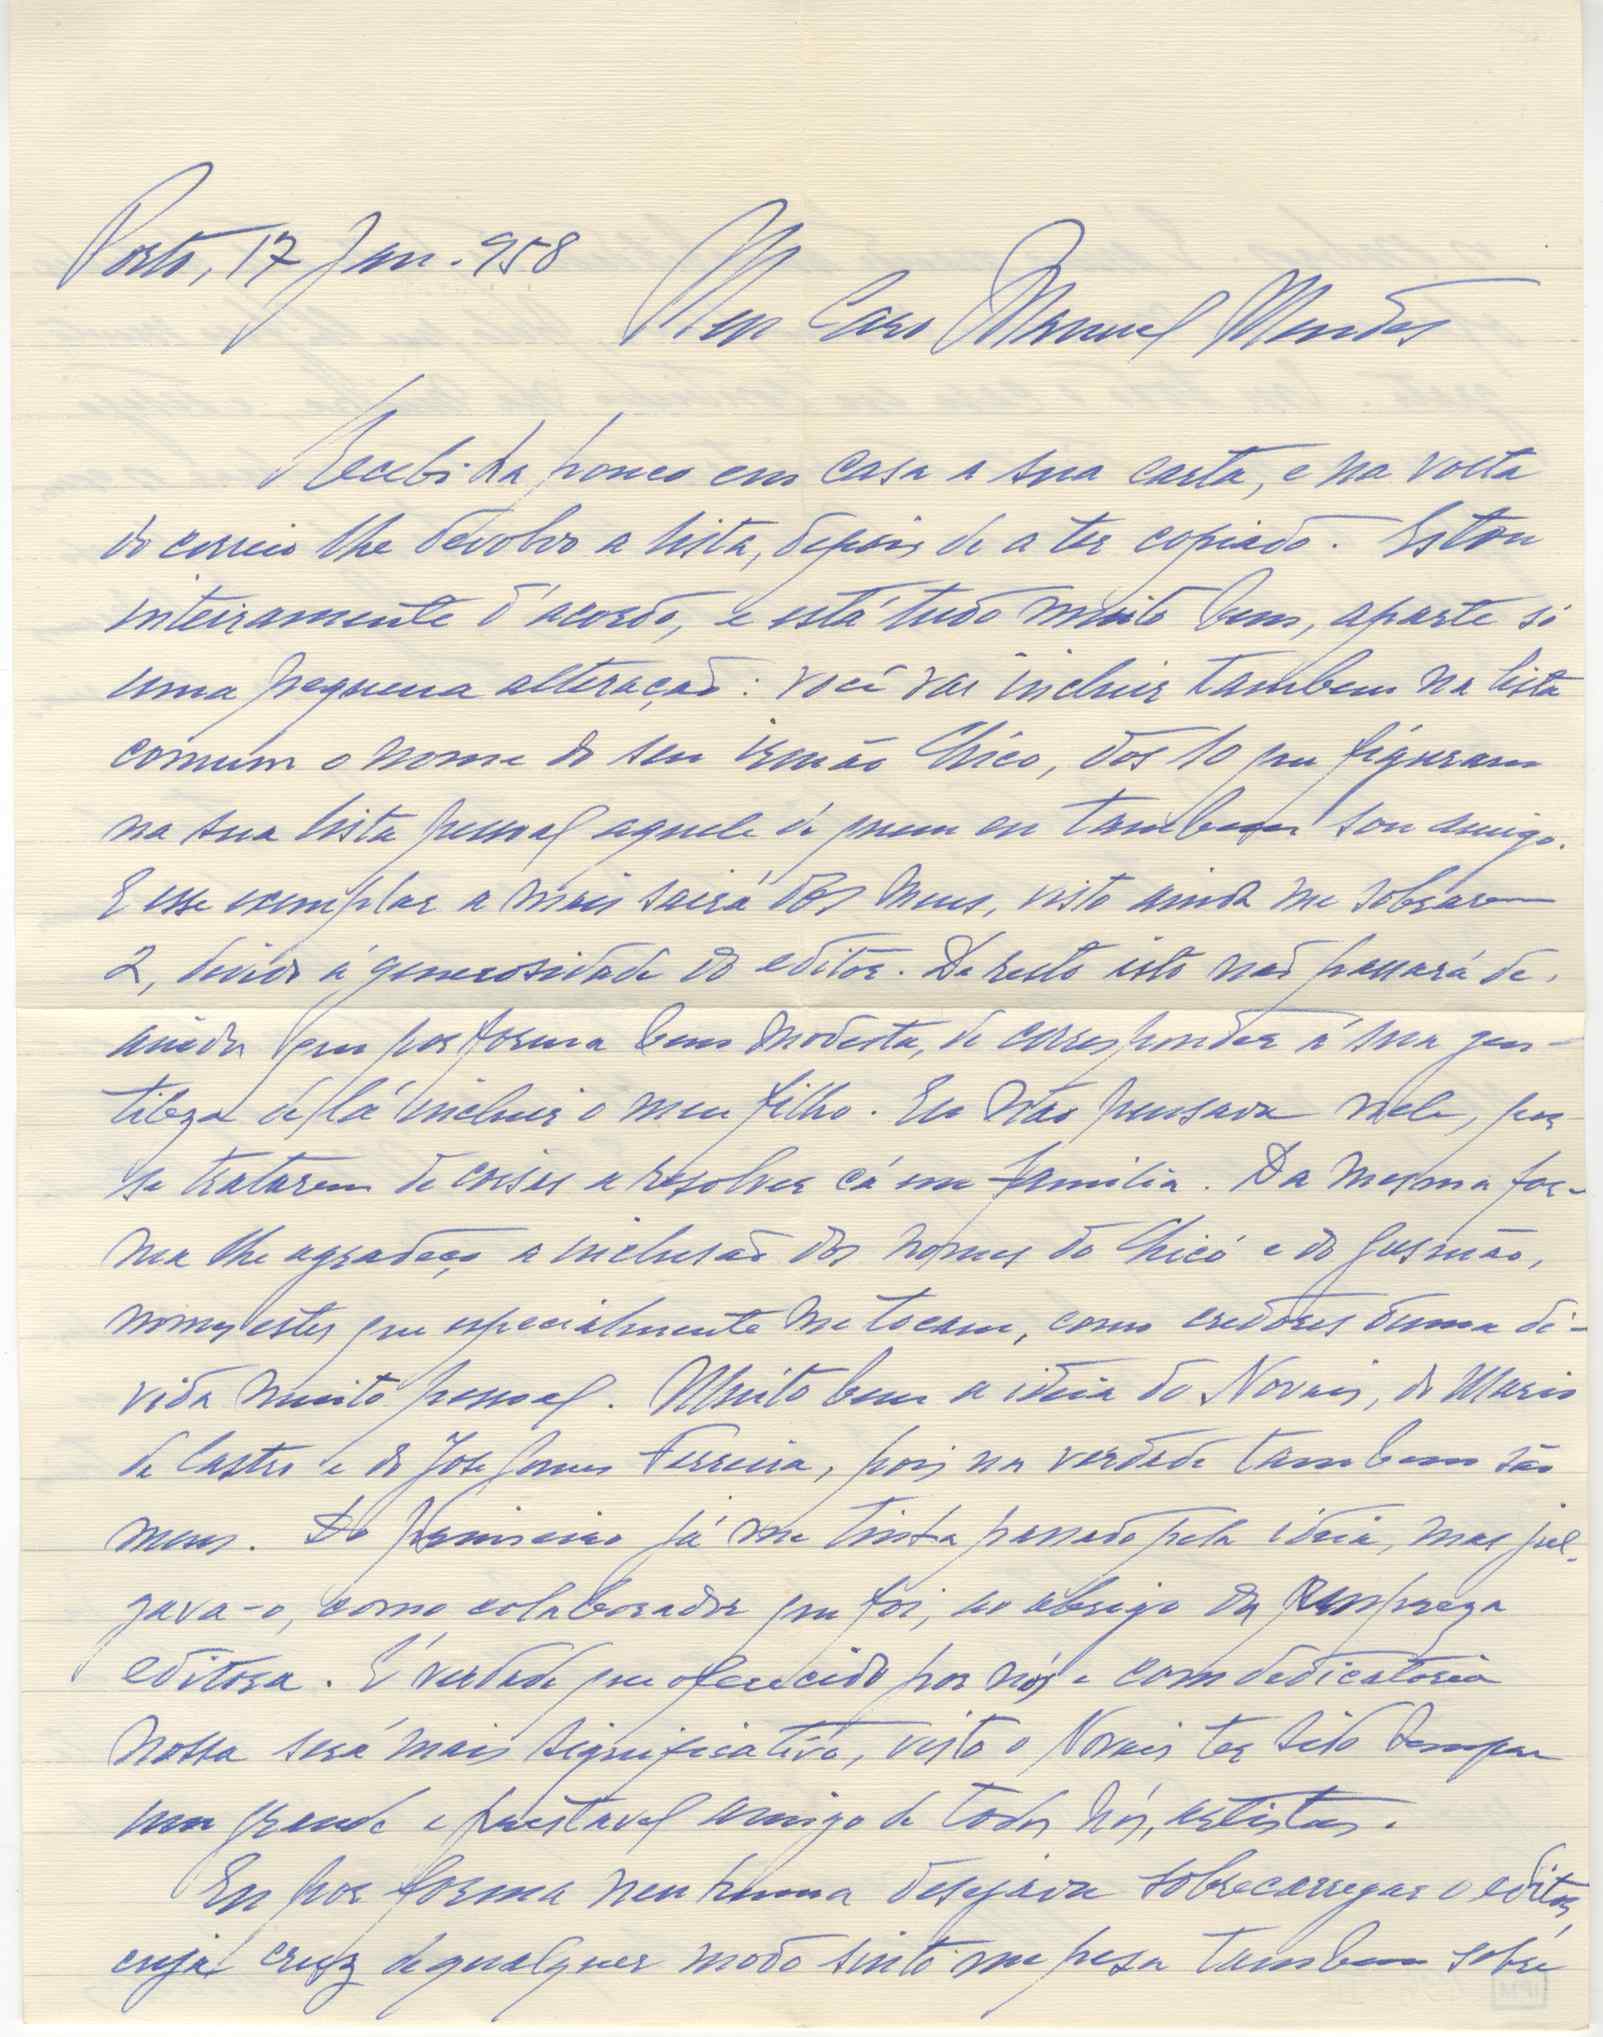 Porto, 17 Jan. 958
Meu Caro Manuel Mendes
Recebi ha pouco em casa a sua carta, e na volta
do correio lhe devolvo a lista, depois de a ter copiado. Estou
inteiramente d'acordo, e está tudo muito bem, aparte só
uma pequena alteração: você vai incluir tambem na lista
comum o nome do seu irmão Chico, dos 10 que figuram
na sua lista pessoal aquele de quem eu tambem sou amigo.
E esse exemplar a mais sairá dos meus, visto ainda me sobrarem
2, devido á generosidade do editor. De resto isto não passará de,
ainda que por forma bem modesta, de corresponder á sua gen-
tileza de lá incluir o meu filho. Eu não pensava nele, por
se tratarem de coisas a resolver cá em familia. Da mesma for-
ma lhe agradeço a inclusão dos nomes do Chicó e do Gusmão,
nomes estes que especialmente me tocam, como credores duma di-
vida muito pessoal. Muito bem a ideia do Novais, do Mario
de Castro e do José Gomes Ferreira, pois na verdade tambem são
meus. Do primeiro já me tinha passado pela ideia, mas jul-
gava-o, como colaborador que foi, ao abrigo da empreza
editora. É verdade que oferecido por nós e com dedicatoria
nossa será mais significativo, visto o Novais ter sido sempre
um grande e prestavel amigo de todos nós, artistas.
Eu por forma nenhuma desejava sobrecarregar o editor,
cuja cruz de qualquer modo sinto me pesa tambem sobre